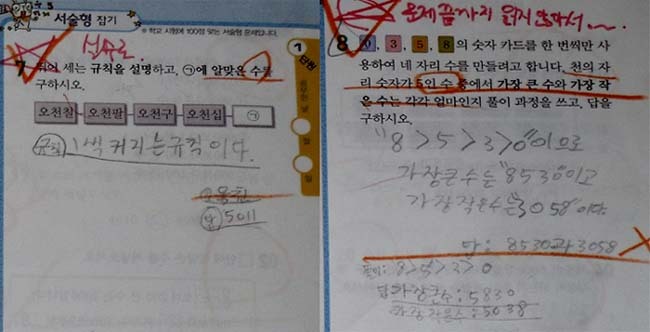 서술형 잡기
※ 학교 시험에 100점 맞는 서술형 문제입니다.
1
단원
월
일
실수로
7 뛰어 세는 규칙을 설명하고, ㉠에 알맞은 수를
구하시오.
오천칠 오천팔 오천구 오천십 ㉠
규칙 1씩 커지는 규칙이다.
답 5011
문제 끝까지 읽지 않아서
8 0, 3, 5, 8의 숫자 카드를 한 번씩만 사
용하여 네 자리 수를 만들려고 합니다. 천의 자
리 숫자가 5인 수 중에서 가장 큰 수와 가장 작
은 수는 각각 얼마인지 풀이 과정을 쓰고, 답을
구하시오.
"8>5>3>0"이므로
가장큰수는"8530"이고
가장작은수는"3058"이다.
답: 8530과 3058
풀이: 8>5>3>0
답 가장큰수: 5830
가장작은수: 5038